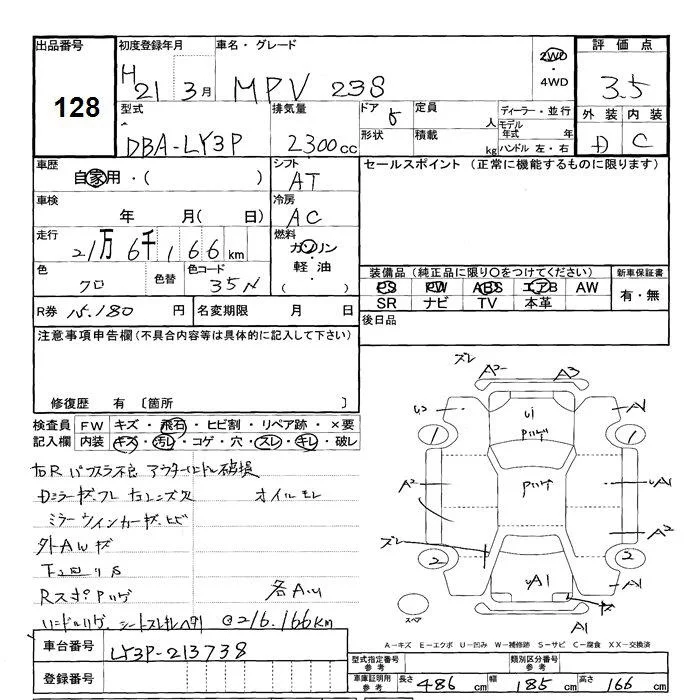 出品番号
128
初度登録年月
H21 3月
車名・グレード
MPV 23S
2WD
4WD
評価点
3.5
外装 内装
D C
型式
DBA-LY3P
排気量
2300cc
ドア 5
定員 人
形状
積載 kg
ディーラー・並行
モデル年式 年
ハンドル 左・右
車歴
自家用・( )
シフト
AT
セールスポイント (正常に機能するものに限ります)
車検
年 月( 日)
冷房
AC
走行
21万6千166km
燃料
ガソリン
軽油
( )
色
クロ
色替
色コード
35N
装備品(純正品に限り○をつけてください)
PS PW ABS エアB AW
SR ナビ TV 本革
新車保証書
有・無
R券 15,180 円
名変期限 月 日
後日品
注意事項申告欄(不具合内容等は具体的に記入して下さい)
修復歴 有 〔箇所 〕
検査員記入欄
FW キズ・飛石・ヒビ割・リペア跡・×要
内装 キズ・汚レ・コゲ・穴・スレ・キレ・破レ
オイルモレ
ミラーウインカーキズ、ヒビ
外AWキズ
下回りS
各AU
@216.166km
車台番号
LY3P-213738
登録番号
ズレ
A2
A3
A1
1
1
A2
UA1
A2
ズレ
2
2
UA1
A1
スペア
A1
A-キズ E-エクボ U-凹み W-補修跡 S-サビ C-腐食 XX-交換済
型式指定番号 参考
類別区分番号 参考
車庫証明用 参考
長さ 486 cm 幅 185 cm 高さ 166 cm